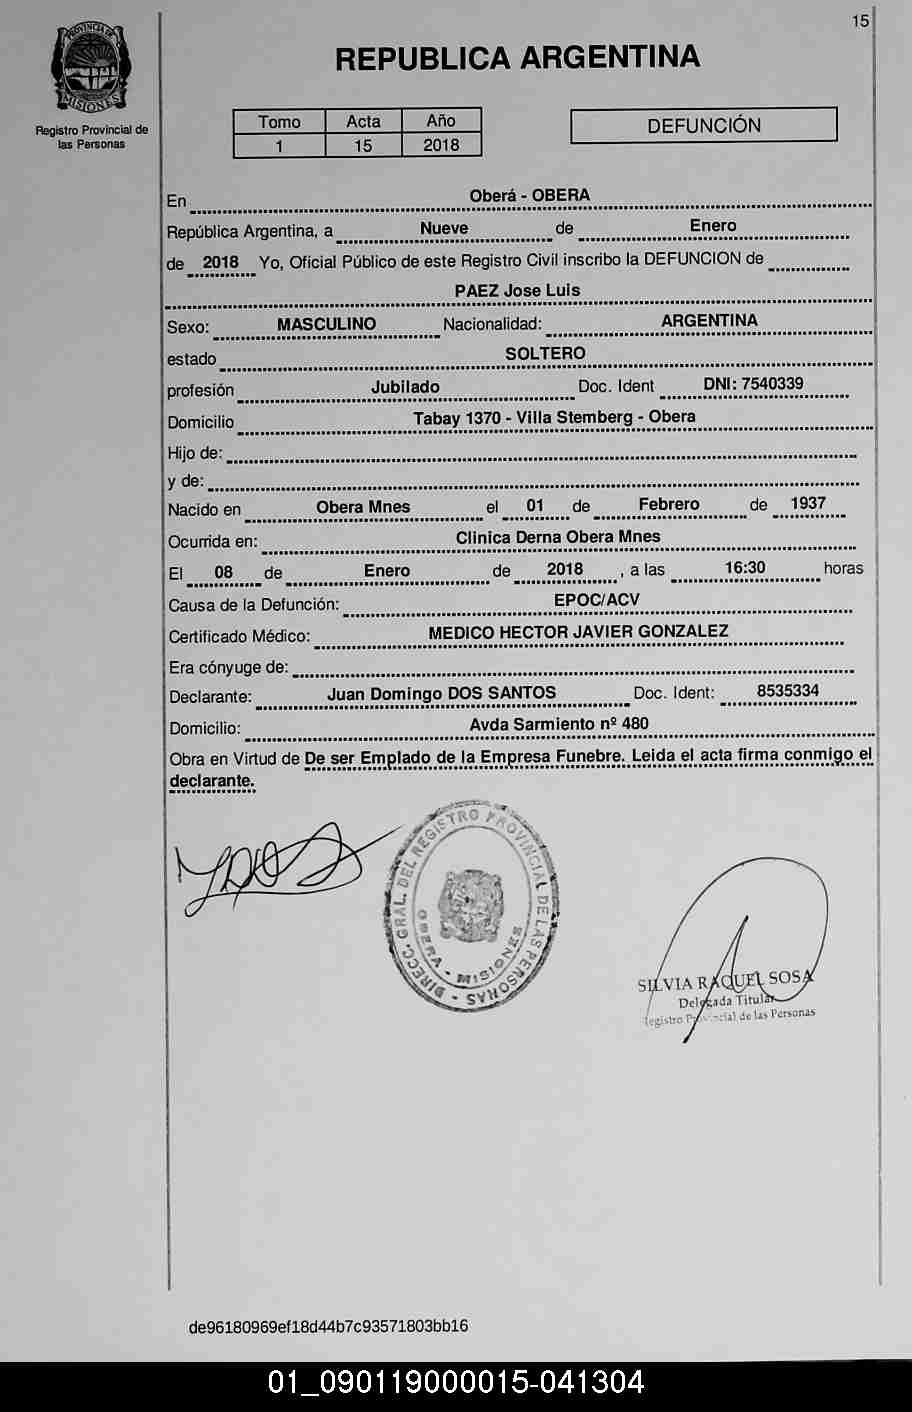 15
PROVINCIA DE
MISIONES
Registro Provincial de
las Personas
REPUBLICA ARGENTINA
Tomo Acta Año
1 15 2018
DEFUNCIÓN
En Oberá - OBERA
República Argentina, a Nueve de Enero
de 2018 Yo, Oficial Público de este Registro Civil inscribo la DEFUNCION de
PAEZ Jose Luis
Sexo: MASCULINO Nacionalidad: ARGENTINA
estado SOLTERO
profesión Jubilado Doc. Ident DNI: 7540339
Domicilio Tabay 1370 - Villa Stemberg - Obera
Hijo de:
y de:
Nacido en Obera Mnes el 01 de Febrero de 1937
Ocurrida en: Clinica Derna Obera Mnes
El 08 de Enero de 2018 , a las 16:30 horas
Causa de la Defunción: EPOC/ACV
Certificado Médico: MEDICO HECTOR JAVIER GONZALEZ
Era cónyuge de:
Declarante: Juan Domingo DOS SANTOS Doc. Ident: 8535334
Domicilio: Avda Sarmiento nº 480
Obra en Virtud de De ser Emplado de la Empresa Funebre. Leida el acta firma conmigo el
declarante.
DIRECC. GRAL. DEL REGISTRO PROVINCIAL DE LAS PERSONAS
OBERA - MISIONES
SILVIA RAQUEL SOSA
Delegada Titular
Registro Provincial de las Personas
de96180969ef18d44b7c93571803bb16
01_090119000015-041304